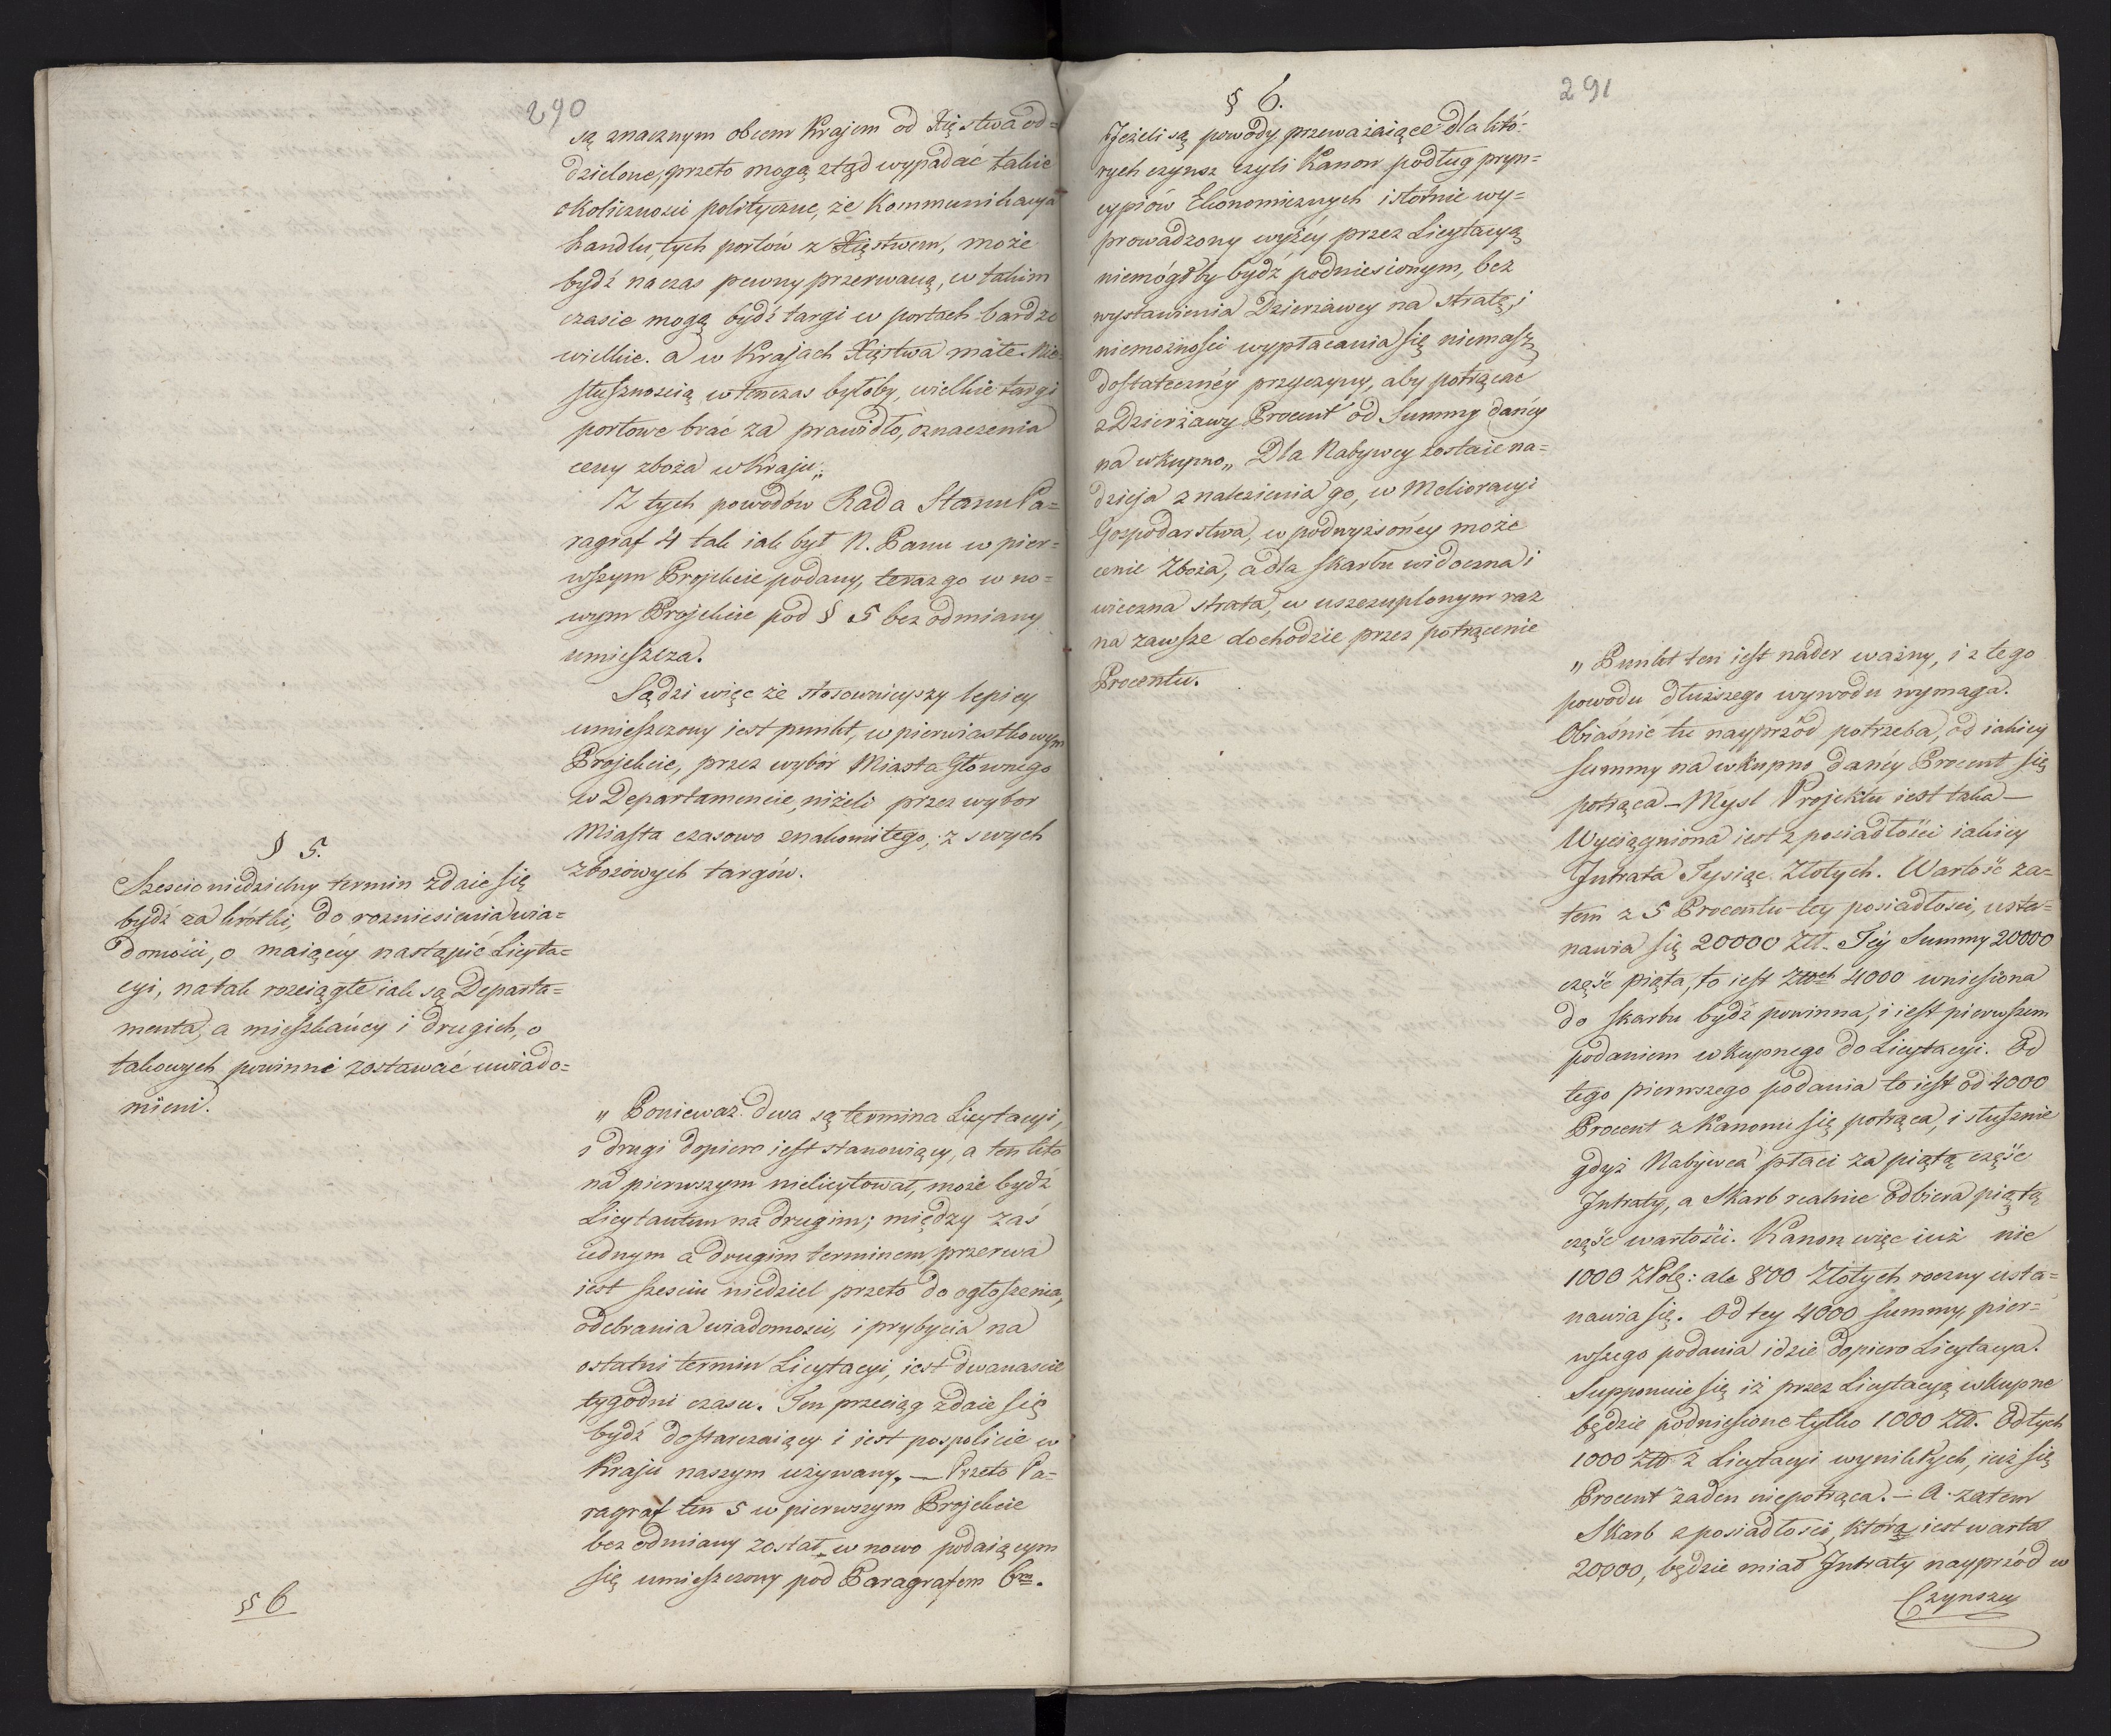 290
są znacznym obcem Krajem od Xięstwa od=
dzielone, przeto mogą ztąd wypadać takie
okoliczności polityczne, że Kommunikacya
handlu, tych portów z Xięstwem, może
bydź na czas pewny przerwaną, w takim
czasie mogą bydź targi w portach bardzo
wielkie. a w Krajach Xięstwa małe. Nie=
słusznością wtenczas byłoby, wielkie targi
portowe brać za prawidło, oznaczenia
ceny zboża w Kraju„
Z tych powodów Rada Stanu Pa=
ragraf 4 tak iak był N. Panu w pier=
wszym Projekcie podany, teraz go w no=
wym Projekcie pod § 5 bez odmiany
umieszcza.
Sądzi więc że stosownieyszy lepiey
umieszczony iest punkt, w pierwiastkowym
Projekcie, przez wybór Miasta Głównego
w Departamencie, niżeli przez wybor
Miasta czasowo znakomitego, z swych
zbożowych targów.
§ 5.
Sześcio niedzielny termin zdaie się
bydź za krótki, do rozniesienia wia=
domości, o maiącéy nastąpić Licyta=
cyi, na tak rozciągłe iak są Departa=
menta, a mieszkańcy i drugich, o
takowych powinni zostawać uwiado=
mieni.
„ Ponieważ dwa są termina Licytacyi,
i drugi dopiero iest stanowiący, a ten kto
na pierwszym nielicytował, może bydź
Licytantem na drugim; między zaś
iednym a drugim terminem, przerwa
iest sześciu niedziel przeto do ogłoszenia,
odebrania wiadomości, i przybycia na
ostatni termin Licytacyi, iest dwanaście
tygodni czasu. Ten przeciąg zdaie się
bydź dostarczaiący i iest pospolicie w
Kraju naszym używany„ — Przeto Pa=
ragraf ten 5 w pierwszym Projekcie
bez odmiany został w nowo podaiącym
się umieszczony pod Paragrafem 6m.
§ 6
291
§ 6.
Jeżeli są powody przeważaiące dla któ=
rych czynsz czyli Kanon podług pryn=
cypiów Ekonomicznych istotnie wy=
prowadzony wyżéy przez Licytacyą
niemógłby bydź podniesionym, bez
wystawienia Dzierżawcy na stratę, i
niemożności wypłacania się niemasz
dostatecznéy przyczyny, aby potrącać
z Dzierżawy Procent od Summy danéy
na wkupno„ Dla Nabywcy zostaie na=
dzieja znalezienia go, w Melioracyi
Gospodarstwa, w podwyższonéy może
cenie Zboża, a dla skarbu widoczna i
wieczna strata, w uszczuplonym raz
na zawsze dochodzie przez potrącenie
Procentu.
„ Punkt ten iest nader ważny, i z tego
powodu dłuższego wywodu wymaga.
Obiaśnić tu nayprzód potrzeba, od iakiey
summy na wkupno danéy Procent się
potrąca — Mysl Projektu iest taka —
Wyciągniona iest z posiadłości iakiey
Intrata Tysiąc Złotych. Wartość za=
tem z 5 Procentu tey posiadłości, usta=
nawia się 20000 Złł. Téy Summy 20000
część piąta, to iest Złłch 4000 wniesiona
do skarbu bydź powinna, i iest pierwszem
podaniem wkupnego do Licytacyi. Od
tego pierwszego podania to iest od 4000
Procent z Kanonu się potrąca, i słusznie
gdyż Nabywca płaci za piątą część
Intraty, a Skarb realnie odbiera piątą
część wartości. Kanon więc iuż nie
1000 ZPolę: ale 800 Złotych roczny usta=
nawia się. Od tey 4000 summy pier=
wszego podania idzie dopiero Licytacya.
Supponuie się iż przez Licytacyą wkupne
będzie podniesione tylko 1000 Złł. Od tych
1000 Złł z Licytacyi wynikłych, iuż się
Procent żaden niepotrąca. — A zatem
Skarb z posiadłości, która iest warta
20000, będzie miał Intraty nayprzód w
Czynszu